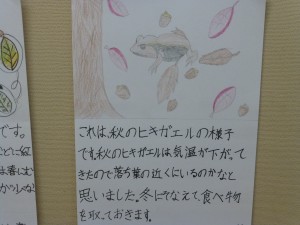 これは、秋のヒキガエルの様子
です。秋のヒキガエルは、気温が下がって
きたので落ち葉の近くにいるのかなと
思いました。冬にそなえて、食べ物
を取っておきます。
です。